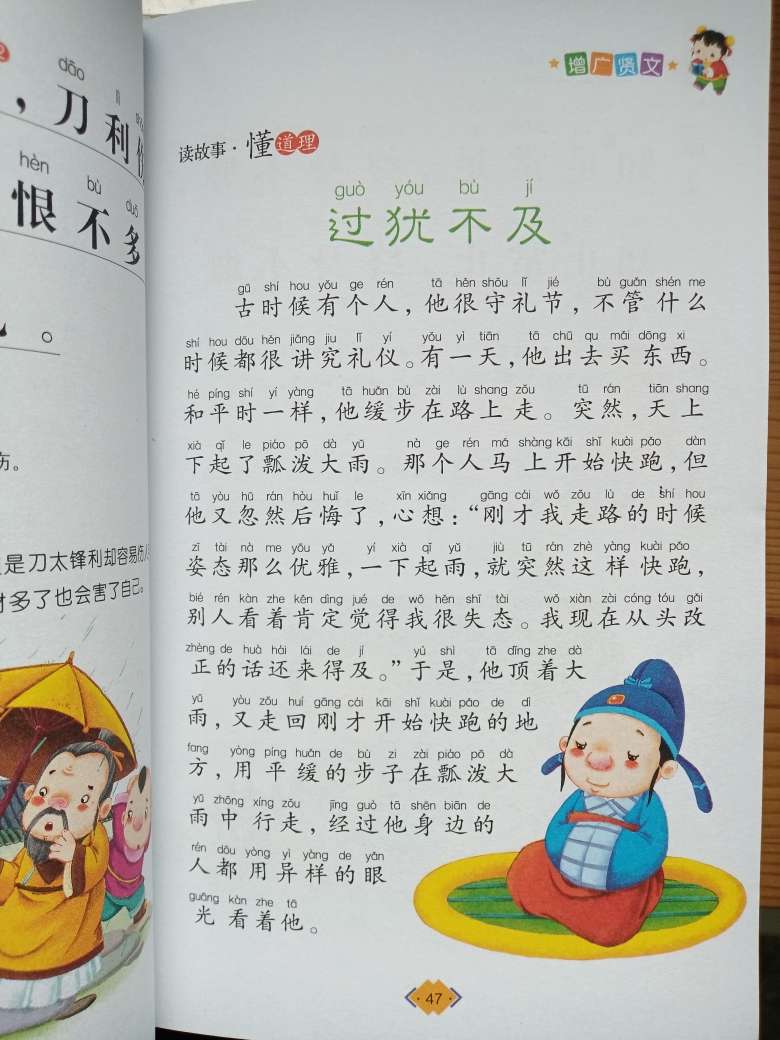 dāo lì
，刀利
hèn bù duō
恨不多
。
伤。
是刀太锋利却容易伤人
财多了也会害了自己。
增广贤文
读故事·懂道理
guò yóu bù jí
过犹不及
gǔ shí hou yǒu ge rén tā hěn shǒu lǐ jié bù guǎn shén me
古时候有个人，他很守礼节，不管什么
shí hou dōu hěn jiǎng jiu lǐ yí yǒu yì tiān tā chū qu mǎi dōng xi
时候都很讲究礼仪。有一天，他出去买东西。
hé píng shí yí yàng tā huǎn bù zài lù shang zǒu tū rán tiān shang
和平时一样，他缓步在路上走。突然，天上
xià qǐ le piáo pō dà yǔ nà ge rén mǎ shàng kāi shǐ kuài pǎo dàn
下起了瓢泼大雨。那个人马上开始快跑，但
tā yòu hū rán hòu huǐ le xīn xiǎng gāng cái wǒ zǒu lù de shí hou
他又忽然后悔了，心想：“刚才我走路的时候
zī tài nà me yōu yǎ yí xià qǐ yǔ jiù tū rán zhè yàng kuài pǎo
姿态那么优雅，一下起雨，就突然这样快跑，
bié rén kàn zhe kěn dìng jué de wǒ hěn shī tài wǒ xiàn zài cóng tóu gǎi
别人看着肯定觉得我很失态。我现在从头改
zhèng de huà hái lái de jí yú shì tā dǐng zhe dà
正的话还来得及。”于是，他顶着大
yǔ yòu zǒu huí gāng cái kāi shǐ kuài pǎo de dì
雨，又走回刚才开始快跑的地
fang yòng píng huǎn de bù zi zài piáo pō dà
方，用平缓的步子在瓢泼大
yǔ zhōng xíng zǒu jīng guò tā shēn biān de
雨中行走，经过他身边的
rén dōu yòng yì yàng de yǎn
人都用异样的眼
guāng kàn zhe tā
光看着他。
47